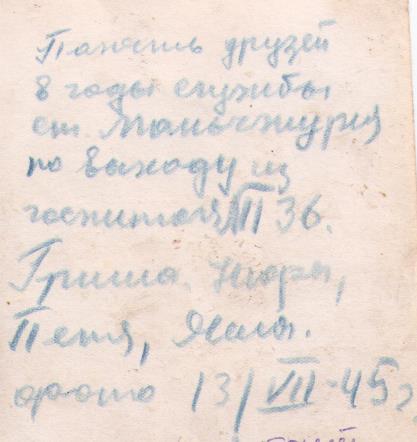 Память друзей
в годы службы
ст Маньчжурия
по выходу из
госпиталя 36.
Гриша.
Петя,
фото 13/VII-45г